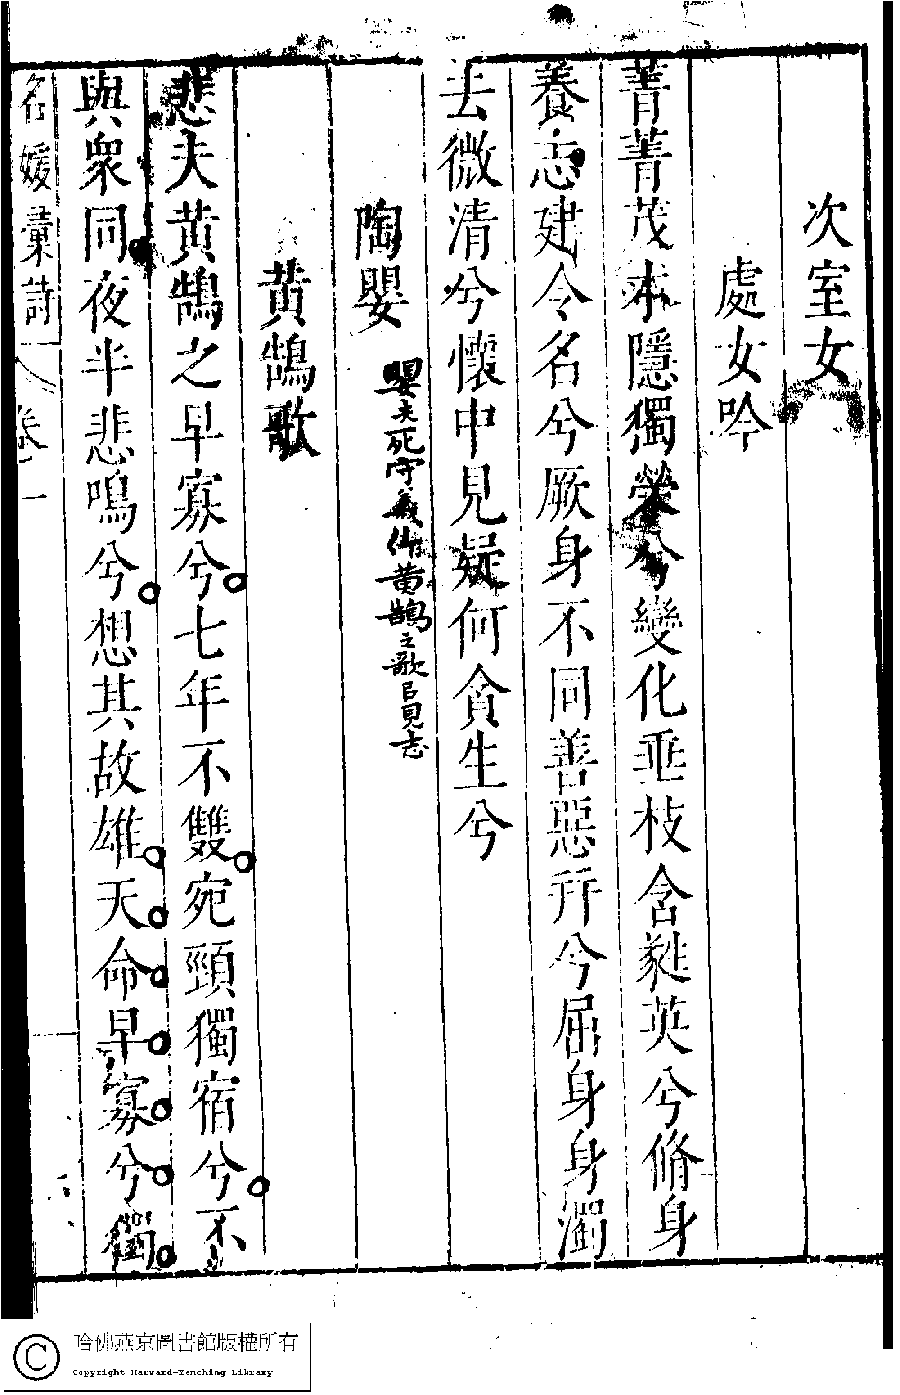 次室女
處女吟
菁菁茂木隱獨榮兮變化垂枝含蕤英兮脩身
養志建令名兮厥身不同善惡并兮屈身身濁
去微清兮懷中見疑何貪生兮
陶嬰
嬰夫死守義作黃鵠之歌㠯見志
黃鵠歌
悲夫黃鵠之早寡兮七年不雙宛頸獨宿兮不
與眾同夜半悲鳴兮想其故雄天命早寡兮獨
名媛彙詩 卷一
哈佛燕京圖書館版權所有
Copyright Harvard-Yenching Library